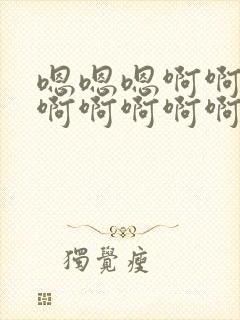 嗯嗯嗯啊啊
啊啊啊啊啊
獨覺瘦